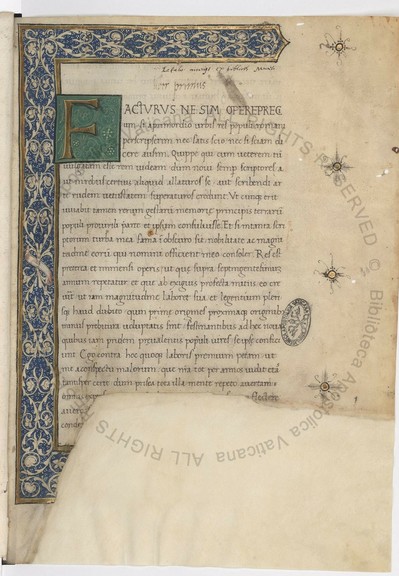 FACTURUS NE SIM OPEREPREC
um si aprimordio urbis res populi romani
perscripserim nec satis scio nec si sciam di
cere ausim. Quippe qui cum ueterem tu
uulgatam esse rem uideam dum noui semp scriptores a
ut in rebus certius aliquid allaturos se aut scribendi ar
te rudem uetustatem superaturos credunt. Vt cunq erit
iuuabit tamen rerum gestarum memorie principis terrarum
populi pro uirili parte et ipsum consuluisse. Et si intanta scri
ptorum turba mea fama i obscuro sit nobilitate ac magni
tudine eorum qui nomini officient meo consoler. Res est
preterea et immensi operis ut que supra septingentesimum
annum repetatur et que ab exiguis profecta initiis eo cre
uerit ut iam magnitudine laboret sua et legentium pleri
sq haud dubito quin prime origines proximaq originibus
minus prebitura uoluptatis sint festinantibus ad hec noua
quibus iam pridem preualentis populi uires se ipse confici
unt. Ego contra hec quoq laboris premium petam ut
me aconspectu malorum que nra tot per annos uidit eta
tantisper certe dum prisca tota illa mente repeto auertam
Biblioteca Apostolica Vaticana ALL RIGHTS RESERVED ©